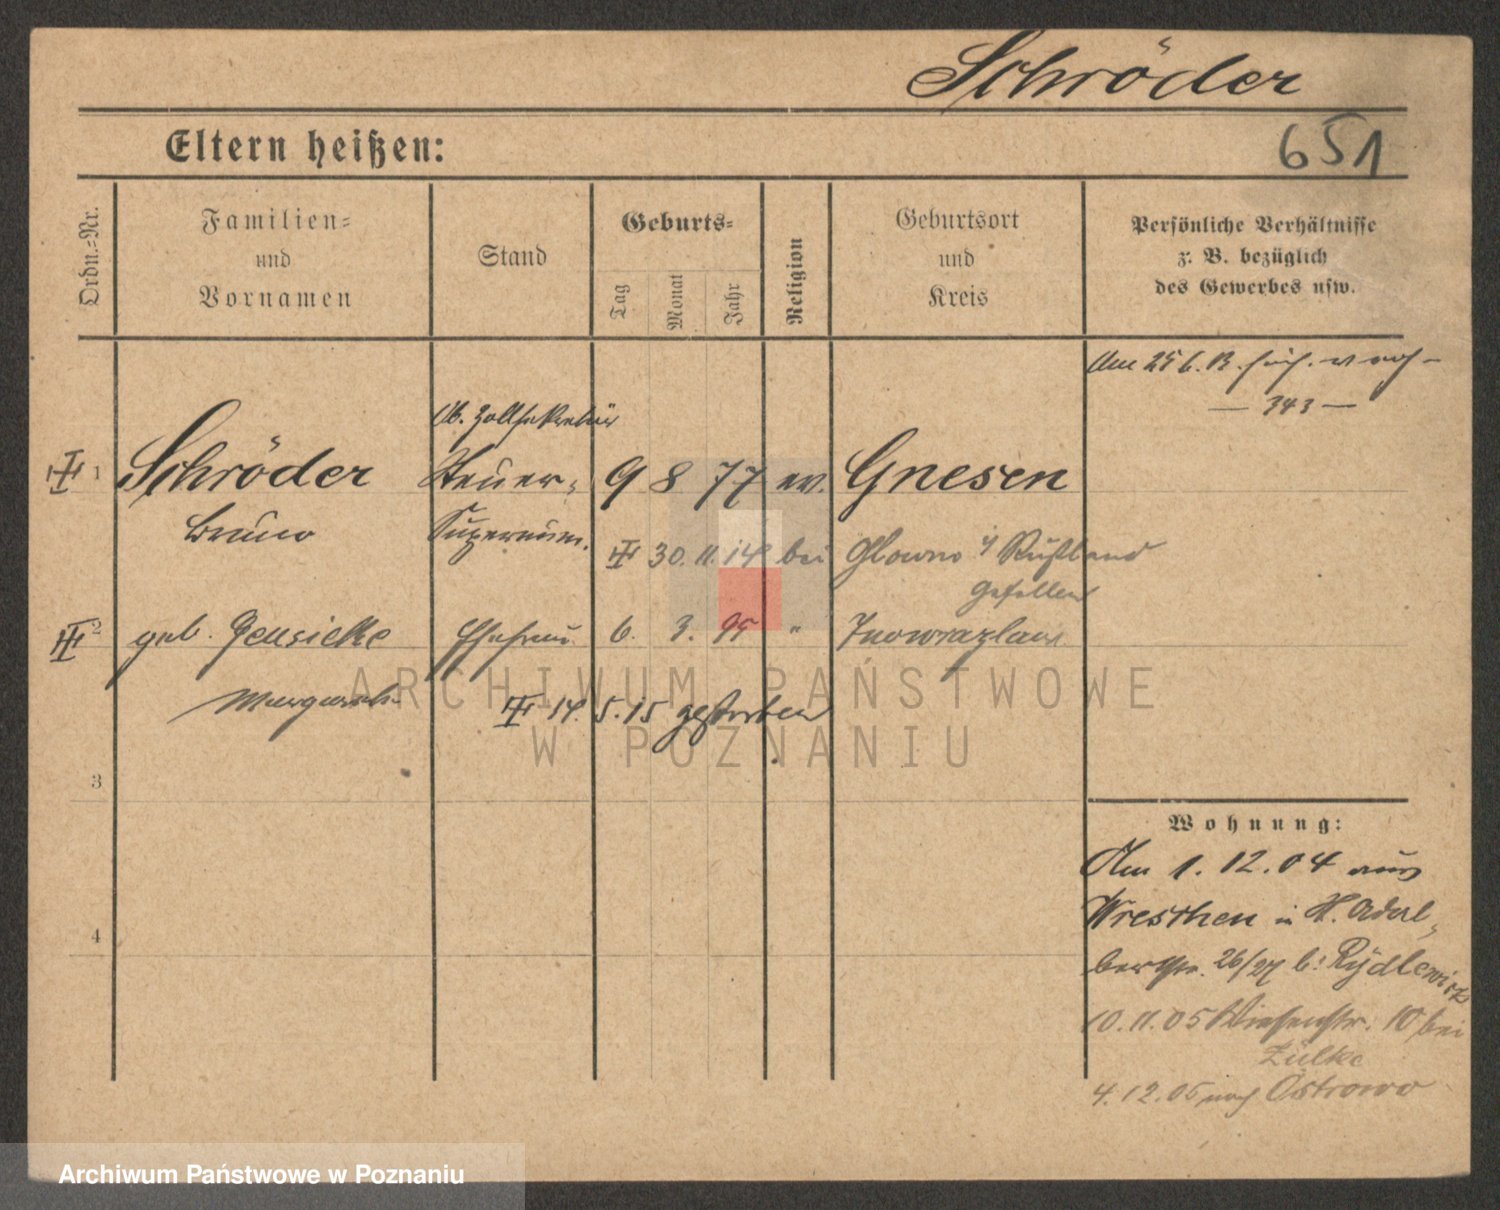 Schröder
651
Eltern heißen:
Ordn.-Nr.
Familien-
und
Vornamen
Stand
Geburts-
Tag
Monat
Jahr
Religion
Geburtsort
und
Kreis
Persönliche Verhältnisse
z. B. bezüglich
des Gewerbes usw.
Am 25 6. 13.
— 343 —
Ob. Zollsekretär
1 Schröder Steuer- 9 8 77 ev. Gnesen
Bruno Supernum.
30. 11. 14 bei Glowno i/ Rußland
gefallen
2 geb. Gensicke Ehefrau 6. 3. 95 " Inowrazlaw
Margarete
14. 5. 15 gestorben
3
4
Wohnung:
Am 1. 12. 04 aus
Wreschen in St. Adal-
bertstr. 26/27 b: Rydlewicz
10. 11. 05 Wiesenstr. 10 bei
Zülke
4. 12. 05 nach Ostrowo
ARCHIWUM PAŃSTWOWE
W POZNANIU
Archiwum Państwowe w Poznaniu